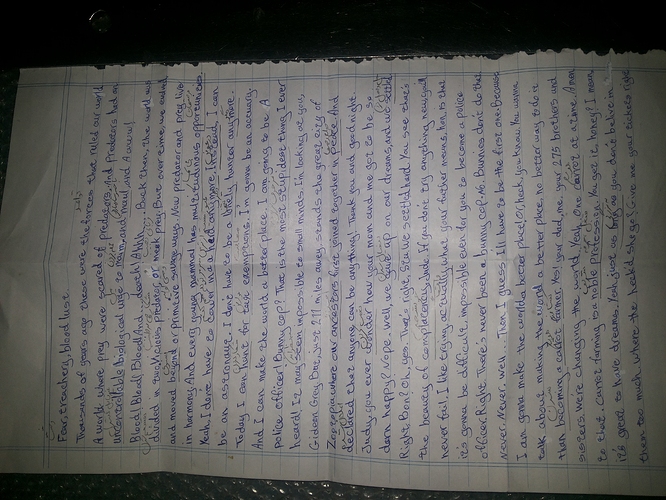 Fear, treachery, blood lust
Thousands of years ago these were the forces that ruled our world
A world where prey were scared of predators. And predators had an
uncontrollable biological urge to maim, and maul, and
Blood! Blood! Blood! And death! Back then, the world was
divided in two. Vicious predator, or meek prey. But over time, we evolved
and moved beyond our primitive savage ways. Now predator and prey live
in harmony. And every young mammal has multitudinous opportunities.
Yeah, I don't have to cower in a herd anymore. Instead, I can
be an astronaut. I don't have to be a lonely hunter anymore.
Today I can hunt for tax exemptions. I'm gonna be an actuary.
And I can make the world a better place. I am going to be A
police officer! Bunny cop? That is the most stupidest thing I ever
heard! It may seem impossible to small minds. I'm looking at you,
Gideon Grey. But, just 211 miles away, stands the great city of
Zootopia where our ancestors first joined together in peace. And
declared that anyone can be anything! Thank you and good night
Judy, you ever wonder how your mom and me got to be so
darn happy? Nope. Well, we gave up on our dreams, and we settled
Right Bon? Oh, yes. That's right, Stu. We settled hard. You see that's
the beauty of complacency, Jude. If you don't try anything new, you'll
never fail. I like trying actually. What your father means, hon, is that
it's gonna be difficult, impossible even for you to become a police
officer. Right. There's never been a bunny cop. No. Bunnies don't do that
Never. Never. Well... Then I guess I'll have to be the first one. Because
I am gonna make the world a better place! Or heck, you know. You wanna
talk about making the world a better place, no better way to do it
than becoming a carrot farmer. Yes! Your dad, me, your 275 brothers and
sisters. We're changing the world. Yeah. One carrot at a time. Amen
to that. Carrot farming is a noble profession. You get it, honey? I mean,
it's great to have dreams. Yeah, just as long as you don't believe in
them too much. Where the heck'd she go? Give me your tickets right